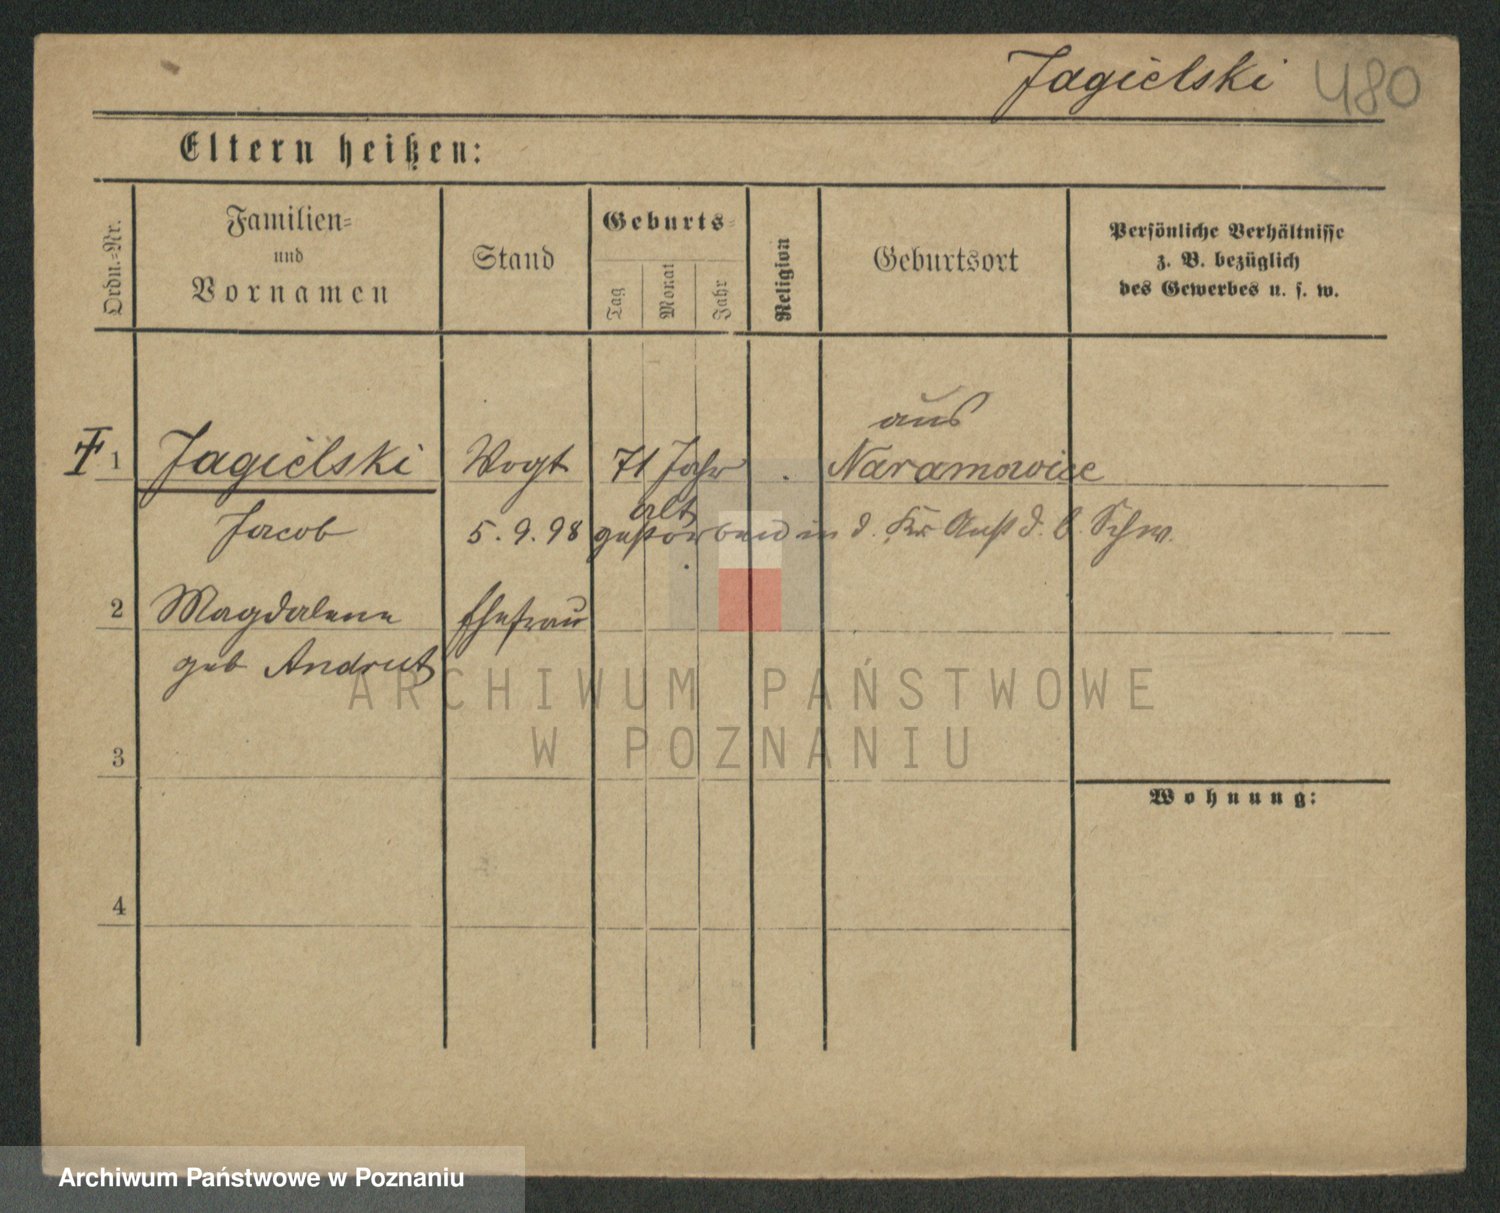 Jagielski 480
Eltern heißen:
Ordn.=Nr.
Familien=
und
Vornamen
Stand
Geburts=
Tag
Monat
Jahr
Religion
Geburtsort
Persönliche Verhältnisse
z. B. bezüglich
des Gewerbes u. s. w.
aus
1 Jagielski Vogt 71 Jahr Naramowice
alt
Jacob 5. 9. 98 gestorben in d. Kr Anst d. b. Schw.
2 Magdalene Ehefrau
geb Andrut
ARCHIWUM PAŃSTWOWE
W POZNANIU
3
Wohnung:
4
Archiwum Państwowe w Poznaniu